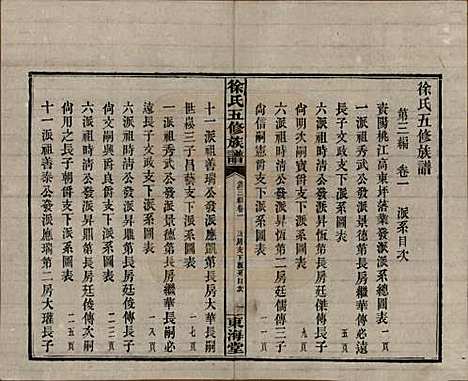 徐氏五修族譜
第三編 卷一 派系目次
資陽桃江高東坪落業發派派系總圖表 一頁
一派祖秀武公發派景德第長房繼華傳必遠
長子文政支下派系圖表 五頁
六派祖時濟公發派昇鼎第長房廷俊傳長子
尙明次嗣寶爵支下派系圖表 九頁
六派祖時清公發派昇第二房廷儒傳三子
尙信嗣子支下派系圖表
徐氏五修族譜
第三編卷一
派系目次
東海堂
十一派祖善瑞公發派應凱第長房大華長嗣
世崧三子昌藝支下派系圖表 一七頁
一派祖秀武公發派景德第長房繼華長嗣必
遠長子文政支下派系圖表 一八頁
六派祖時清公發派昇鼎第長房廷俊傳長子
尙興長嗣爵良爵文支下派系圖表 二二頁
六派祖時濟公發派昇鼎第長房廷俊傳次子
尙用之長子朝爵支下派系圖表 二五頁
十一派祖善泰公發派應瑞第二房大瓘長子